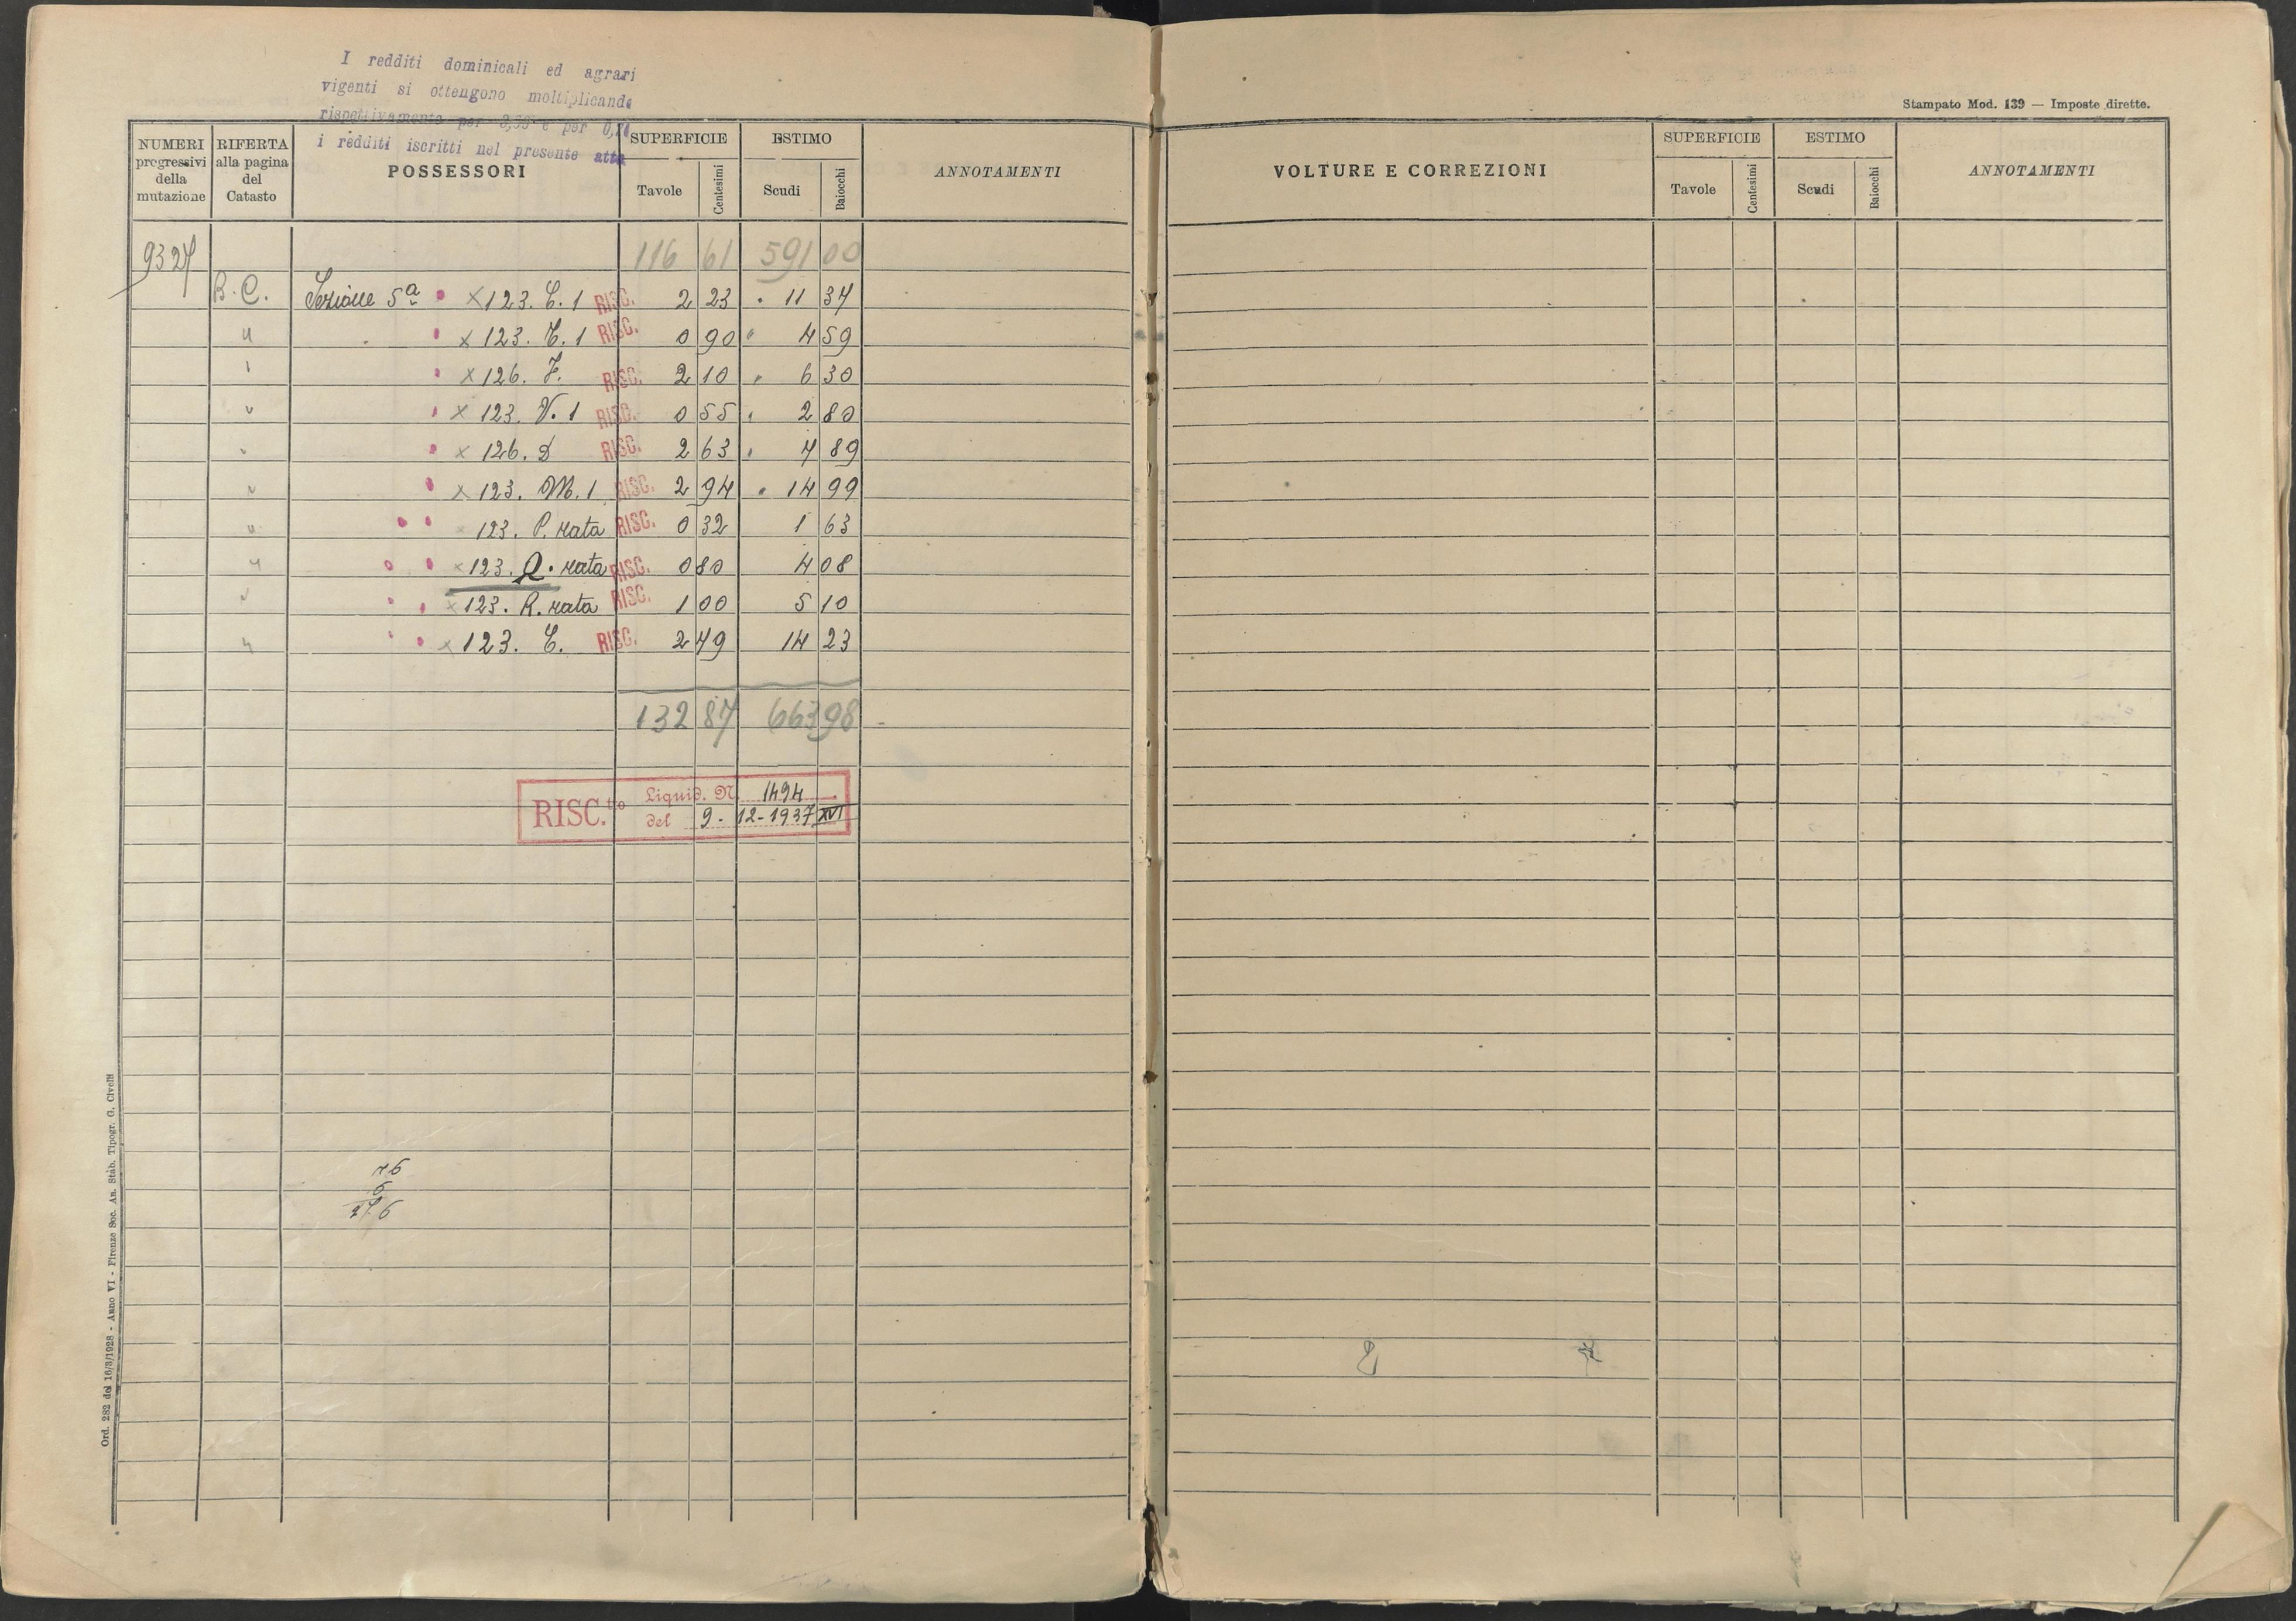 I redditi dominicali ed agrari
vigenti si ottengono moltiplicando
rispettivamente per e per
i redditi iscritti nel presente atto
Stampato Mod. 139 — Imposte dirette.
NUMERI progressivi della mutazione
RIFERTA alla pagina del Catasto
POSSESSORI
SUPERFICIE Tavole Centesimi
ESTIMO Scudi Baiocchi
ANNOTAMENTI
9327 116 61 591 00
B.C. Sezione 5ª × 123. C. 1 RISC. 2 23 11 34
" × 123. 1 RISC. 0 90 " 4 59
× 126. RISC. 2 10 " 6 30
" × 123. V. 1 RISC. 0 55 2 80
" × 126. D RISC. 2 63 7 89
" × 123. M. 1 RISC. 2 94 14 99
" 123. P. rata RISC. 0 32 1 63
" × 123. Q. rata RISC. 0 80 4 08
" × 123. R. rata RISC. 1 00 5 10
" × 123. C. RISC. 2 79 14 23
132 87 663 98
RISC.tto Liquid. N. 1494
del 9-12-1937 XVI
76
6
276
Ord. 282 del 16/3/1928 - Anno VI - Firenze Soc. An. Stab. Tipogr. G. Civelli
VOLTURE E CORREZIONI
SUPERFICIE Tavole Centesimi
ESTIMO Scudi Baiocchi
ANNOTAMENTI